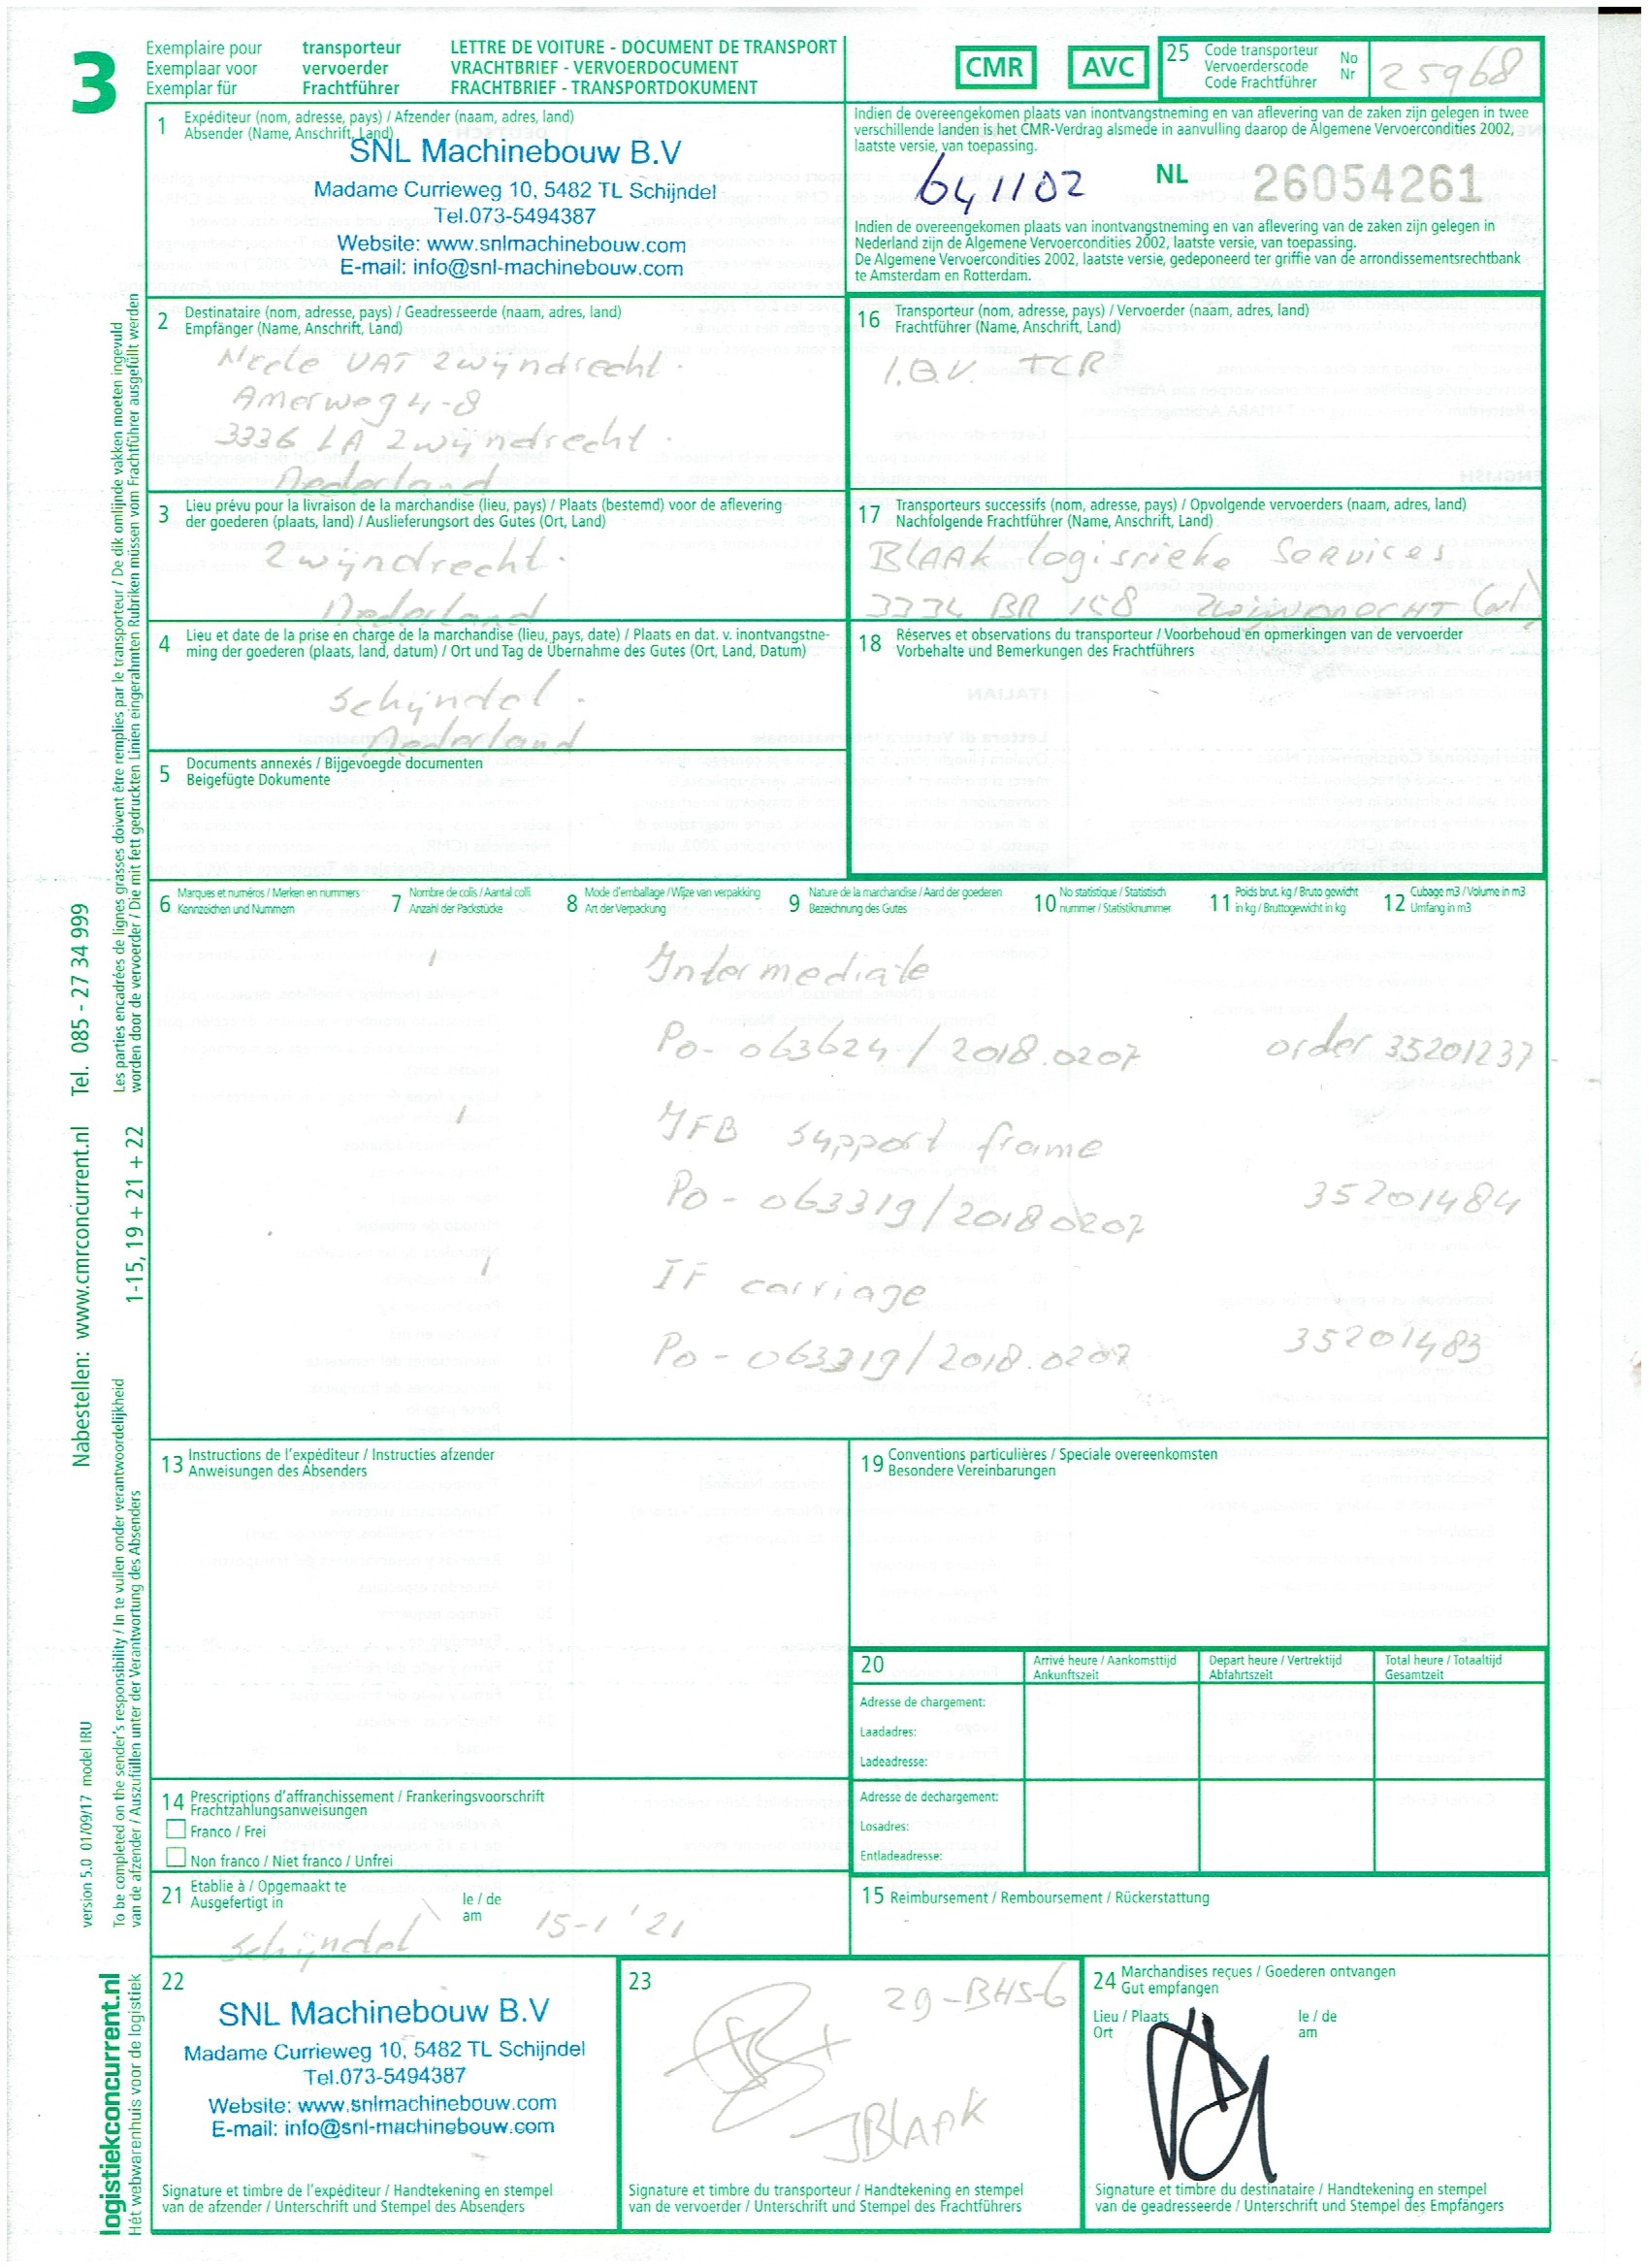 3
Exemplaire pour transporteur
Exemplaar voor vervoerder
Exemplar für Frachtführer
LETTRE DE VOITURE - DOCUMENT DE TRANSPORT
VRACHTBRIEF - VERVOERDOCUMENT
FRACHTBRIEF - TRANSPORTDOKUMENT
CMR
AVC
25 Code transporteur
Vervoerderscode
Code Frachtführer
No
Nr
25968
1 Expéditeur (nom, adresse, pays) / Afzender (naam, adres, land)
Absender (Name, Anschrift, Land)
SNL Machinebouw B.V
Madame Currieweg 10, 5482 TL Schijndel
Tel.073-5494387
Website: www.snlmachinebouw.com
E-mail: info@snl-machinebouw.com
Indien de overeengekomen plaats van inontvangstneming en van aflevering van de zaken zijn gelegen in twee
verschillende landen is het CMR-Verdrag alsmede in aanvulling daarop de Algemene Vervoercondities 2002,
laatste versie, van toepassing.
641102
NL 26054261
Indien de overeengekomen plaats van inontvangstneming en van aflevering van de zaken zijn gelegen in
Nederland zijn de Algemene Vervoercondities 2002, laatste versie, van toepassing.
De Algemene Vervoercondities 2002, laatste versie, gedeponeerd ter griffie van de arrondissementsrechtbank
te Amsterdam en Rotterdam.
2 Destinataire (nom, adresse, pays) / Geadresseerde (naam, adres, land)
Empfänger (Name, Anschrift, Land)
VAT Zwijndrecht.
Amerweg 4-8
3336 LA Zwijndrecht.
Nederland
16 Transporteur (nom, adresse, pays) / Vervoerder (naam, adres, land)
Frachtführer (Name, Anschrift, Land)
TCR
3 Lieu prévu pour la livraison de la marchandise (lieu, pays) / Plaats (bestemd) voor de aflevering
der goederen (plaats, land) / Auslieferungsort des Gutes (Ort, Land)
Zwijndrecht.
Nederland
17 Transporteurs successifs (nom, adresse, pays) / Opvolgende vervoerders (naam, adres, land)
Nachfolgende Frachtführer (Name, Anschrift, Land)
BLAAK Logistieke Services
3334 BR 158 ZWIJNDRECHT (NL)
4 Lieu et date de la prise en charge de la marchandise (lieu, pays, date) / Plaats en dat. v. inontvangstne-
ming der goederen (plaats, land, datum) / Ort und Tag de Übernahme des Gutes (Ort, Land, Datum)
Schijndel.
Nederland
18 Réserves et observations du transporteur / Voorbehoud en opmerkingen van de vervoerder
Vorbehalte und Bemerkungen des Frachtführers
5 Documents annexés / Bijgevoegde documenten
Beigefügte Dokumente
6 Marques et numéros / Merken en nummers
Kennzeichen und Nummern
7 Nombre de colis / Aantal colli
Anzahl der Packstücke
8 Mode d'emballage / Wijze van verpakking
Art der Verpackung
9 Nature de la marchandise / Aard der goederen
Bezeichnung des Gutes
10 No statistique / Statistisch
nummer / Statistiknummer
11 Poids brut. kg / Bruto gewicht
in kg / Bruttogewicht in kg
12 Cubage m3 / Volume in m3
Umfang in m3
1 Intermediate
Po- 063624 / 2018.0207 order 35201237
1 IFB support frame
Po - 063319/20180207 35201484
1 IF carriage
Po - 063319/2018.0207 35201483
13 Instructions de l'expéditeur / Instructies afzender
Anweisungen des Absenders
19 Conventions particulières / Speciale overeenkomsten
Besondere Vereinbarungen
20
Arrivé heure / Aankomsttijd
Ankunftszeit
Depart heure / Vertrektijd
Abfahrtszeit
Total heure / Totaaltijd
Gesamtzeit
Adresse de chargement:
Laadadres:
Ladeadresse:
Adresse de dechargement:
Losadres:
Entladeadresse:
14 Prescriptions d'affranchissement / Frankeringsvoorschrift
Frachtzahlungsanweisungen
Franco / Frei
Non franco / Niet franco / Unfrei
21 Etablie à / Opgemaakt te
Ausgefertigt in
le / de
am
Schijndel 15-1 '21
15 Reimbursement / Remboursement / Rückerstattung
22
SNL Machinebouw B.V
Madame Currieweg 10, 5482 TL Schijndel
Tel.073-5494387
Website: www.snlmachinebouw.com
E-mail: info@snl-machinebouw.com
Signature et timbre de l'expéditeur / Handtekening en stempel
van de afzender / Unterschrift und Stempel des Absenders
23
29-BHS-6
JBLAAK
Signature et timbre du transporteur / Handtekening en stempel
van de vervoerder / Unterschrift und Stempel des Frachtführers
24 Marchandises reçues / Goederen ontvangen
Gut empfangen
Lieu / Plaats
Ort
le / de
am
Signature et timbre du destinataire / Handtekening en stempel
van de geadresseerde / Unterschrift und Stempel des Empfängers
Les parties encadrées de lignes grasses doivent être remplies par le transporteur / De dik omlijnde vakken moeten ingevuld
worden door de vervoerder / Die mit fett gedruckten Linien eingerahmten Rubriken müssen vom Frachtführer ausgefüllt werden
Nabestellen: www.cmrconcurrent.nl Tel. 085 - 27 34 999
1-15, 19 + 21 + 22
version 5.0 01/09/17 model IRU
To be completed on the sender's responsibility / In te vullen onder verantwoordelijkheid
van de afzender / Auszufüllen unter der Verantwortung des Absenders
logistiekconcurrent.nl
Hét webwarenhuis voor de logistiek